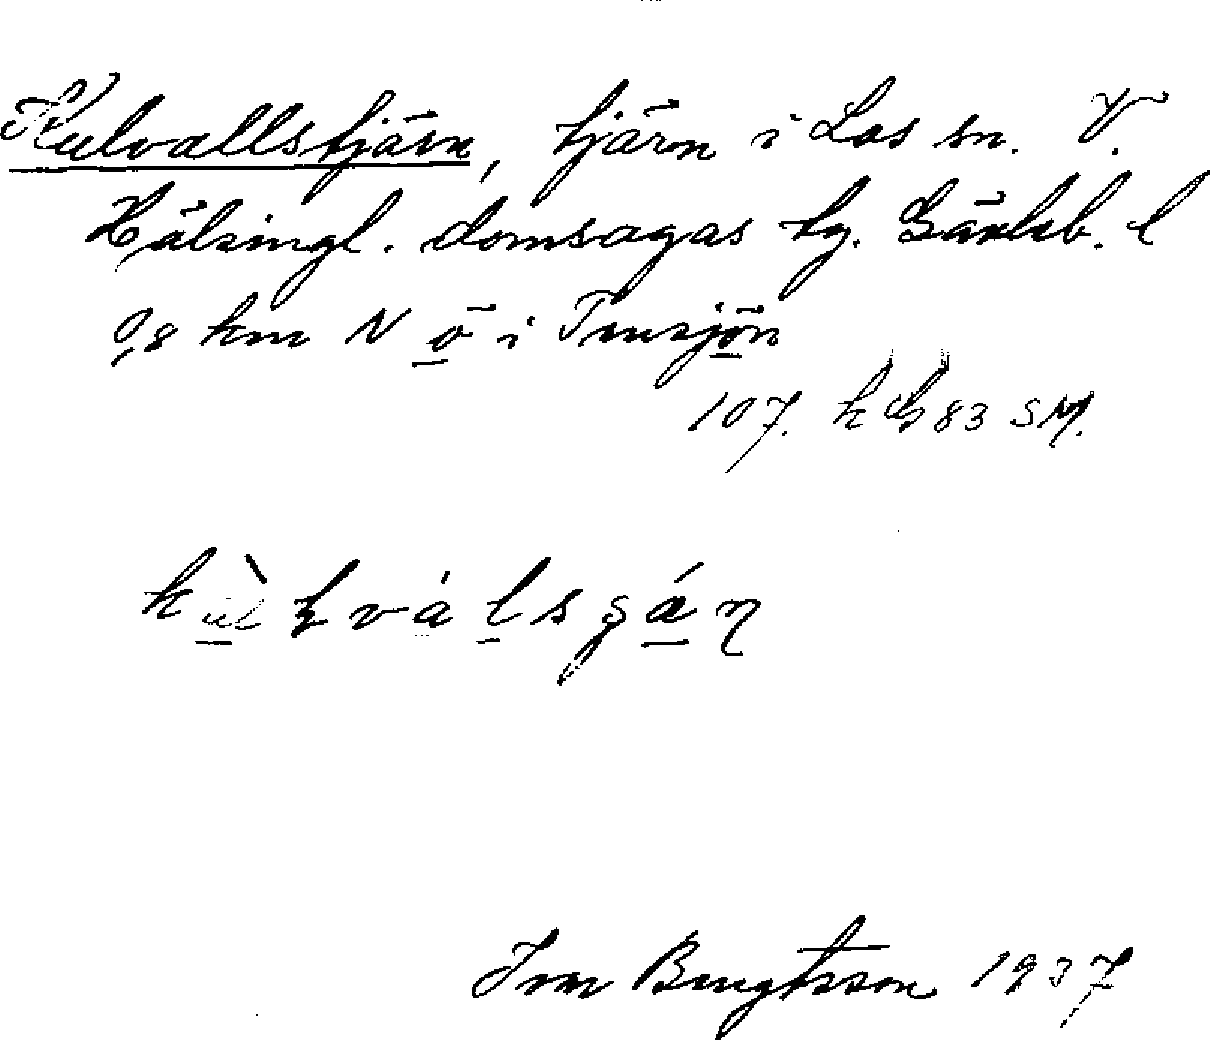 Kulvallstjärn, tjärn i Los sn. V.
Hälsingl. domsagas tg. Gävleb. l
0,8 km N ö i Tensjön
107. k G 83 SM.
Ivar Bengtsson 1937